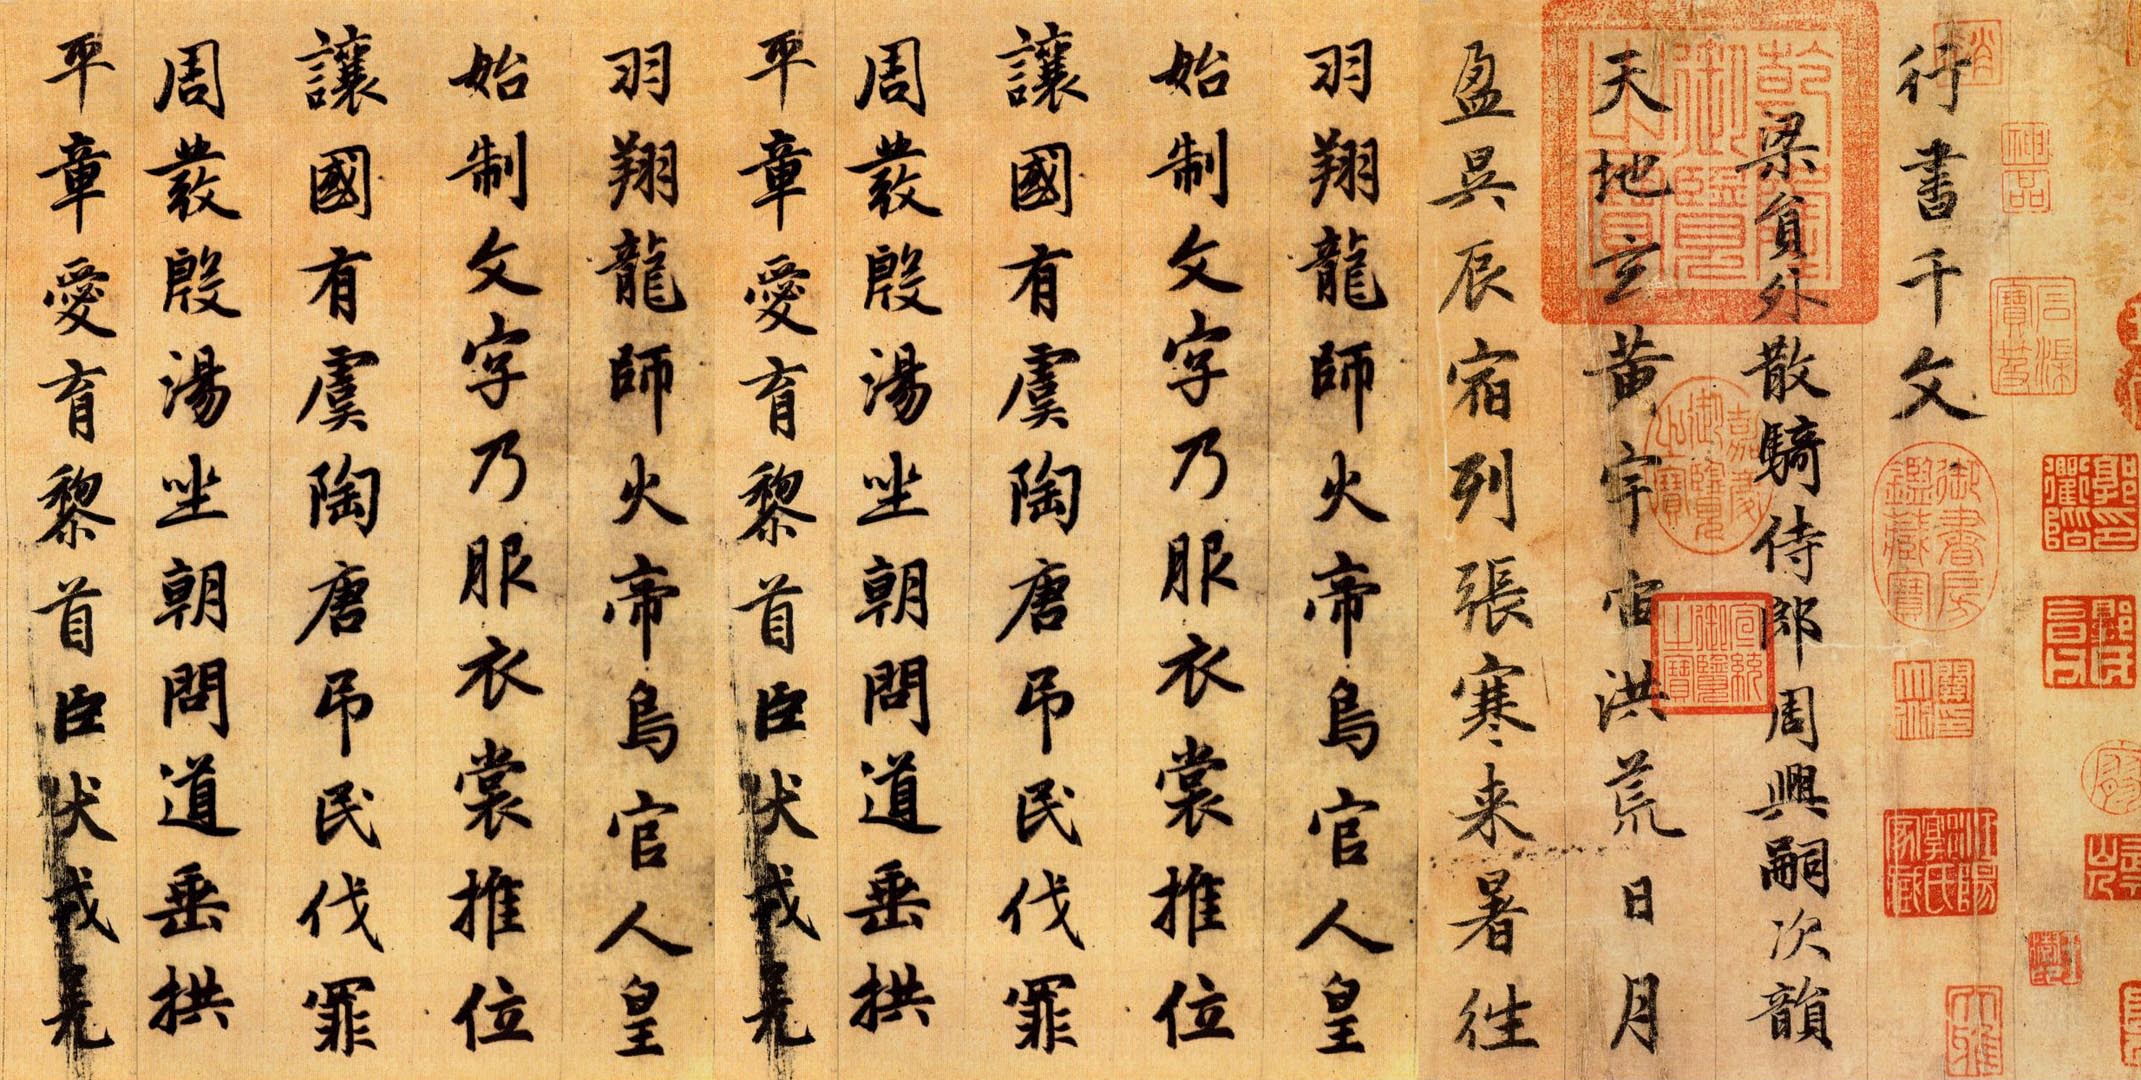 神品
御書房鑑藏寶
行書千文
乾隆御覽之寶
梁員外散騎侍郎周興嗣次韻
嘉慶御覽之寶
宣統御覽之寶
天地玄黃宇宙洪荒日月
盈昃辰宿列張寒来暑往
羽翔龍師火帝鳥官人皇
始制文字乃服衣裳推位
讓國有虞陶唐吊民伐罪
周發殷湯坐朝問道垂拱
平章愛育黎首臣伏戎羌
羽翔龍師火帝鳥官人皇
始制文字乃服衣裳推位
讓國有虞陶唐吊民伐罪
周發殷湯坐朝問道垂拱
平章愛育黎首臣伏戎羌